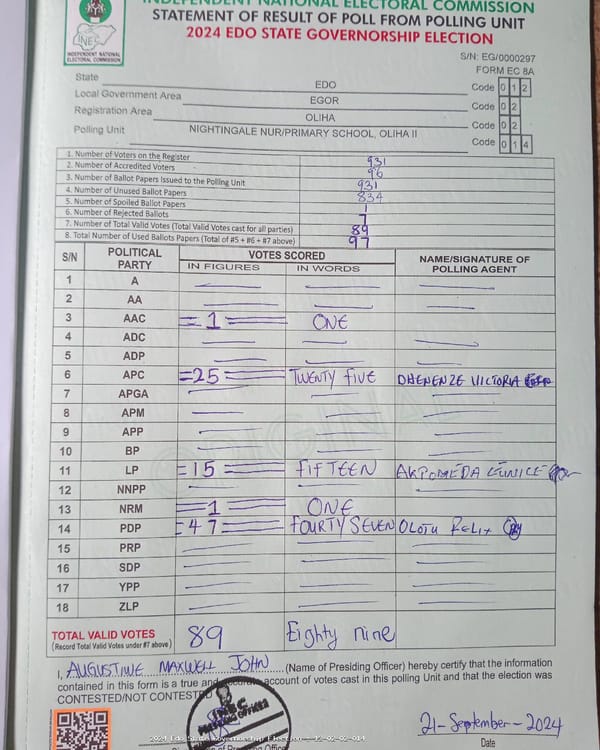 INDEPENDENT NATIONAL ELECTORAL COMMISSION
STATEMENT OF RESULT OF POLL FROM POLLING UNIT
2024 EDO STATE GOVERNORSHIP ELECTION
INEC
INDEPENDENT NATIONAL
ELECTORAL COMMISSION
S/N: EG/0000297
FORM EC 8A
State EDO Code 0 1 2
Local Government Area EGOR Code 0 2
Registration Area OLIHA Code 0 2
Polling Unit NIGHTINGALE NUR/PRIMARY SCHOOL, OLIHA II Code 0 1 4
1. Number of Voters on the Register 931
2. Number of Accredited Voters 96
3. Number of Ballot Papers Issued to the Polling Unit 931
4. Number of Unused Ballot Papers 834
5. Number of Spoiled Ballot Papers 1
6. Number of Rejected Ballots 7
7. Number of Total Valid Votes (Total Valid Votes cast for all parties) 89
8. Total Number of Used Ballots Papers (Total of #5 + #6 + #7 above) 97
S/N POLITICAL PARTY VOTES SCORED NAME/SIGNATURE OF POLLING AGENT
IN FIGURES IN WORDS
1 A
2 AA
3 AAC =1= ONE
4 ADC
5 ADP
6 APC =25= TWENTY FIVE OHENENZE VICTORIA
7 APGA
8 APM
9 APP
10 BP
11 LP =15= FIFTEEN AKPOMEDA EUNICE
12 NNPP
13 NRM =1= ONE
14 PDP =47= FOURTY SEVEN OLOTU FELIX
15 PRP
16 SDP
17 YPP
18 ZLP
TOTAL VALID VOTES 89 Eighty nine
(Record Total Valid Votes under #7 above)
I, AUGUSTINE MAXWELL JOHN (Name of Presiding Officer) hereby certify that the information
contained in this form is a true and account of votes cast in this polling Unit and that the election was
CONTESTED/NOT CONTESTED
21-September-2024
Date
2024 Edo State Governorship Election - 12-02-02-014